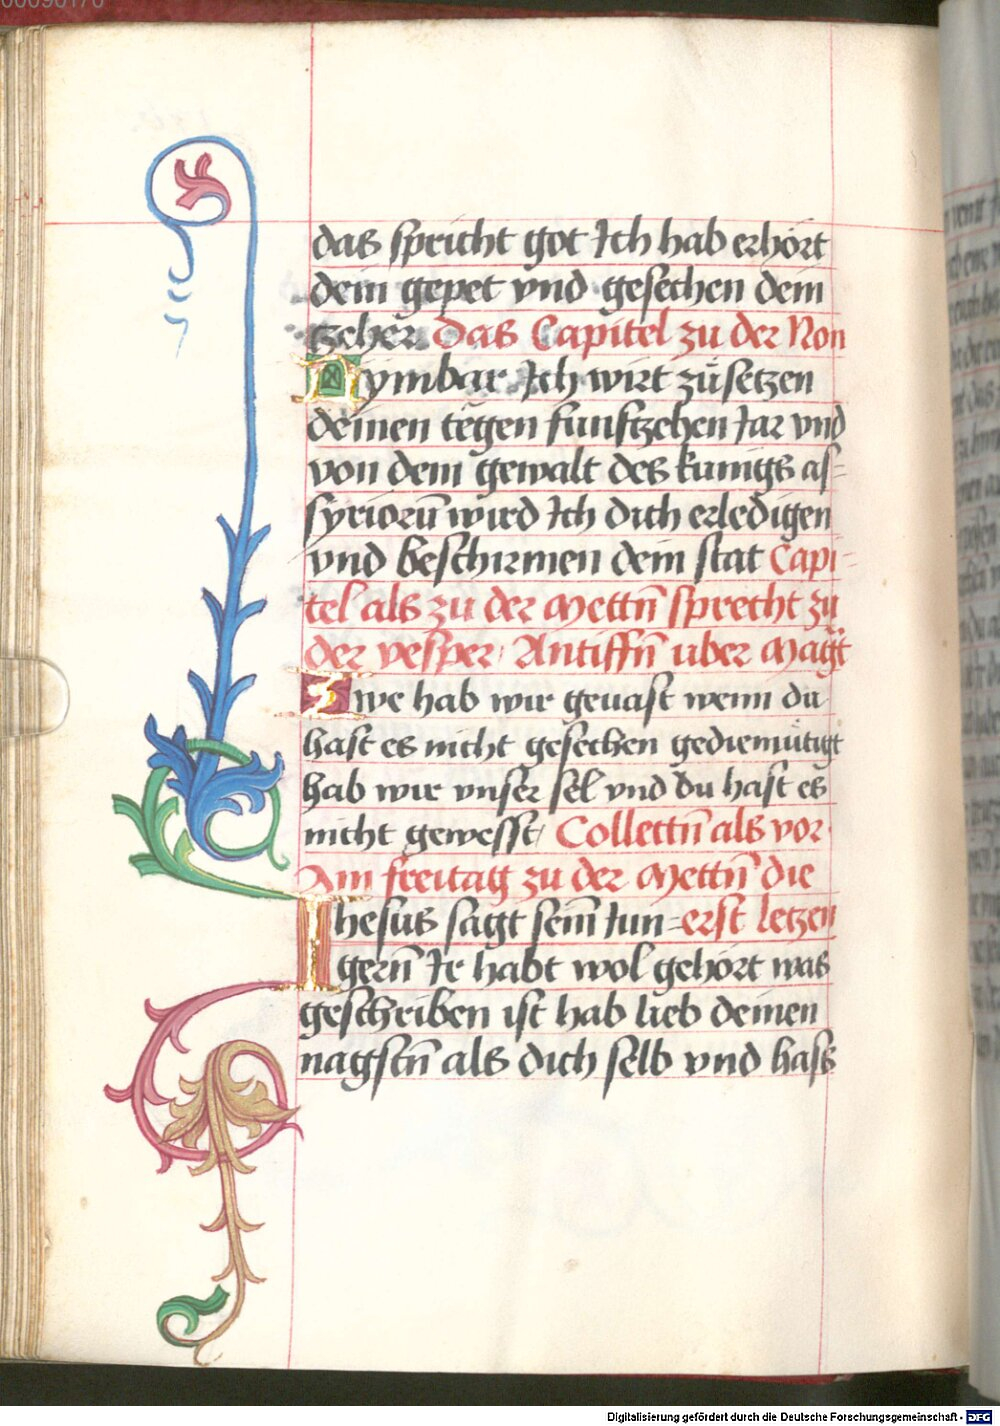 das spricht got Ich hab erhört
dein gepet vnd gesechen dein
tzcher Das Capitel zu der Non
Nymbar Ich wirt zů setzen
deinen tëgen funftzehen Jar vnd
von dem gewalt des kunigs as=
syriorū wird Ich dich erledigen
vnd beschirmen dein stat Capi=
tel als zu der Mettn̄ sprecht zů
der vesper Antiffn̄ uber Mag̈t
Zwe hab wir geuast wenn du
hast es nicht gesechen gediemütigt
hab wir vnser sel vnd du hast es
nicht gewesst Collectn̄ als vor
Am freitag zu der Mettn̄ die
Ihesus sagt sein̄ Jun= erst letzen
gern̄ Ir habt wol gehört was
geschriben ist hab lieb deinen
nagstn̄ als dich selb vnd hass
Digitalisierung gefördert durch die Deutsche Forschungsgemeinschaft - DFG